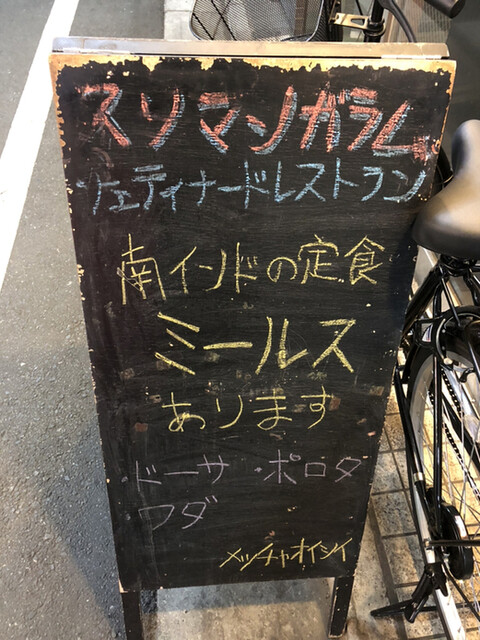 スリマンガラム
ツェティナードレストラン
南インドの定食
ミールス
あります
・ドーサ ・ポロタ
ワダ
メッチャオイシイ